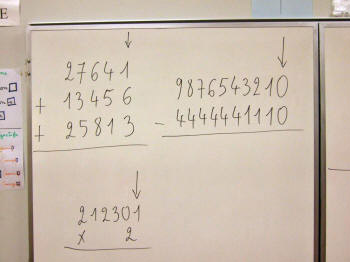 E
27641
+ 13456
+ 25813
9876543210
- 4444441110
212301
x 2